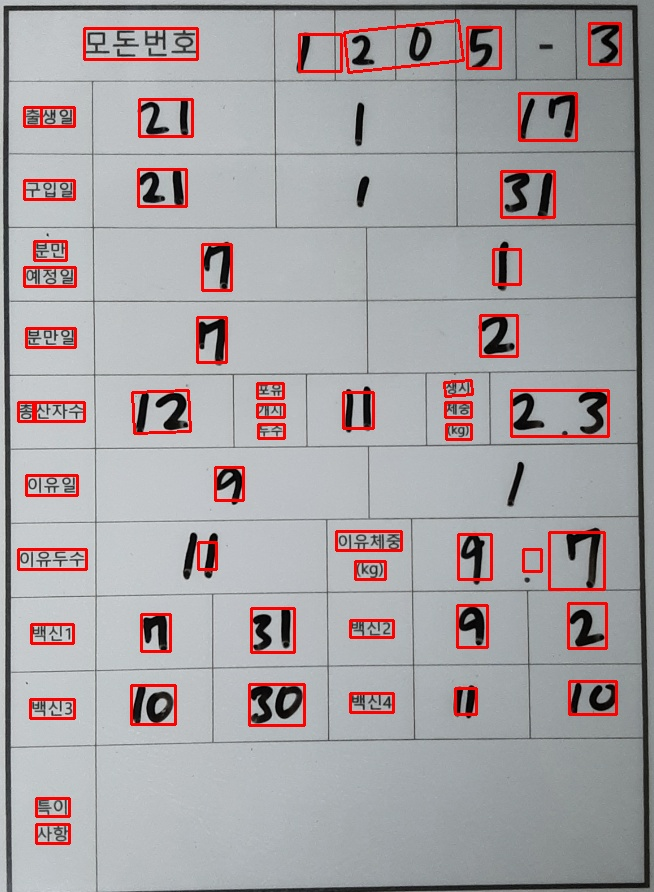 모돈번호 1 2 0 5 - 3
출생일 21 1 17
구입일 21 1 31
분만
예정일 7 1
분만일 7 2
총산자수 12 포유
개시
두수 11 생시
체중
(kg) 2.3
이유일 9 1
이유두수 11 이유체중
(kg) 9.7
백신1 7 31 백신2 9 2
백신3 10 30 백신4 11 10
특이
사항